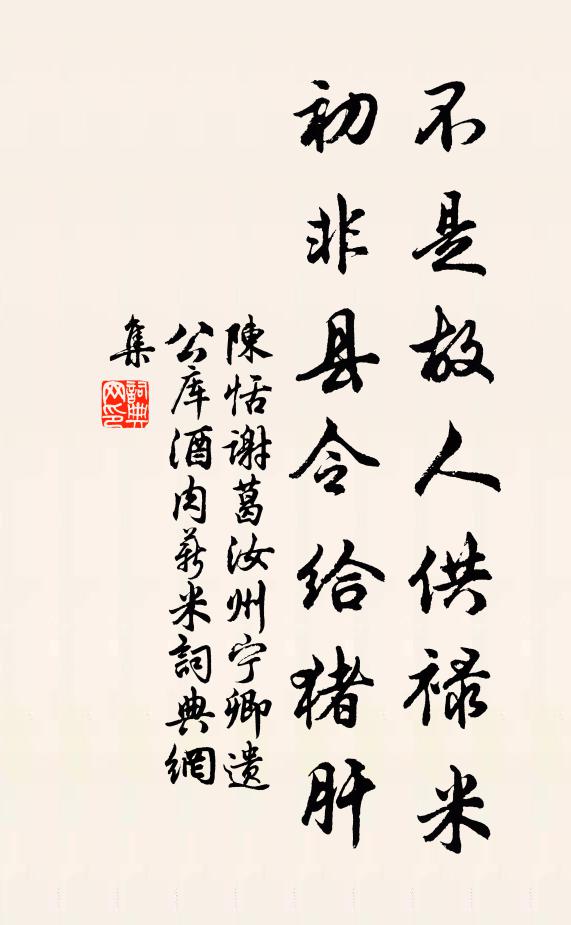 不是故人供禄米
初非县令给猪肝
陳恬谢葛汝州宁卿遗
公库酒肉薪米詞典網
集
詞典网印